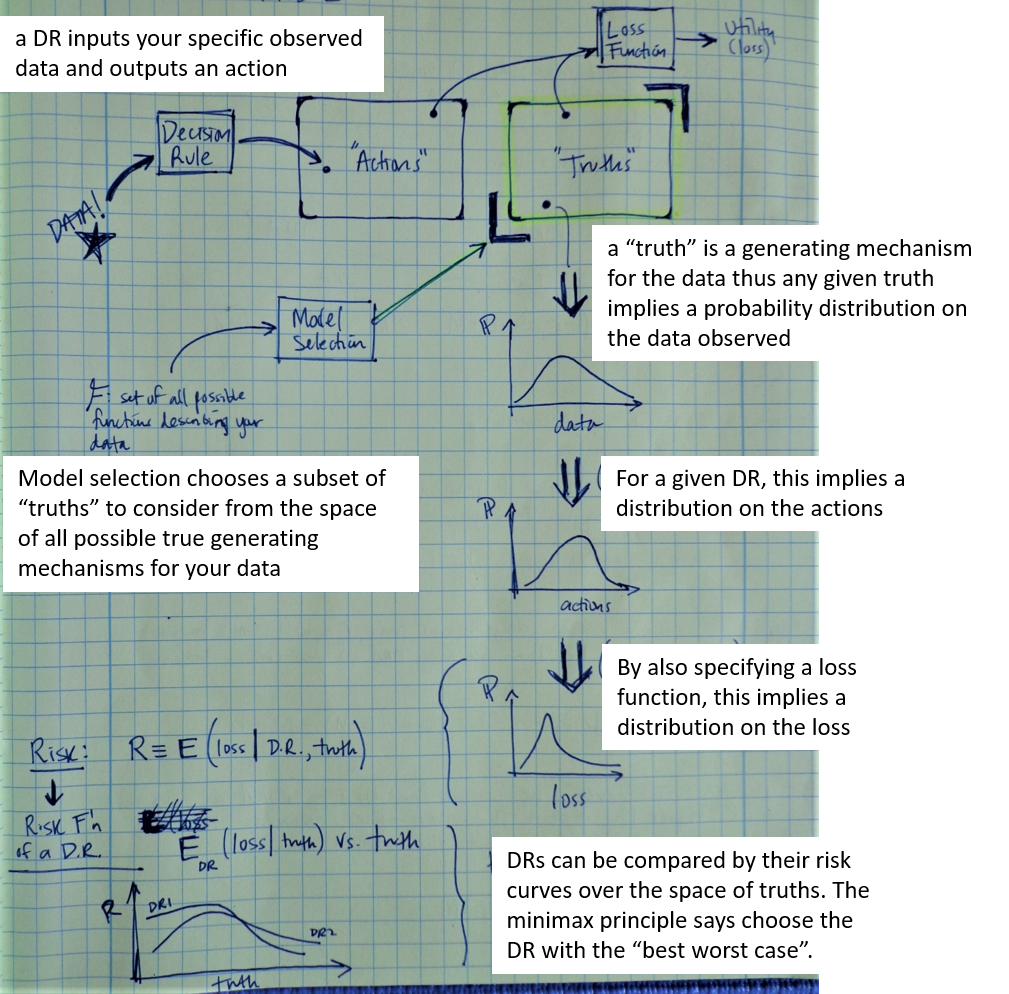 a DR inputs your specific observed
data and outputs an action
Loss
Function
Utility
(loss)
Decision
Rule
"Actions"
"Truths"
DATA!
a “truth” is a generating mechanism
for the data thus any given truth
implies a probability distribution on
the data observed
Model
Selection
ℙ
data
F: set of all possible
functions describing your
data
Model selection chooses a subset of
“truths” to consider from the space
of all possible true generating
mechanisms for your data
For a given DR, this implies a
distribution on the actions
ℙ
actions
By also specifying a loss
function, this implies a
distribution on the loss
ℙ
loss
Risk: R ≡ E (loss | D.R., truth)
Risk F'n
of a D.R.
E DR (loss | truth) vs. truth
DRs can be compared by their risk
curves over the space of truths. The
minimax principle says choose the
DR with the “best worst case”.
R
DR1
DR2
truth